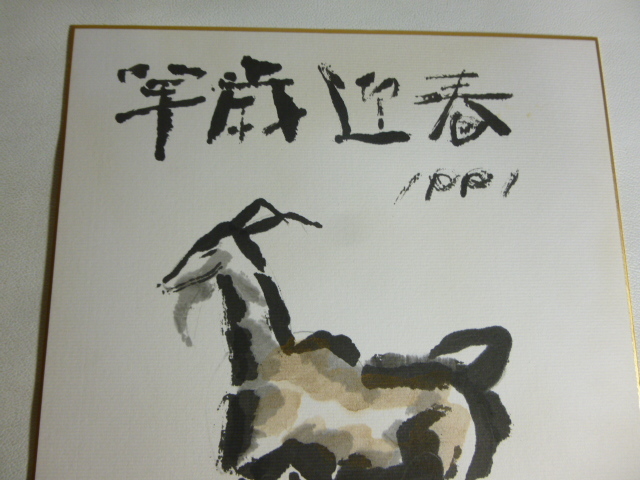 羊歳迎春
1991